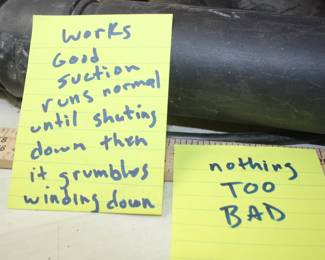 works
Good
suction
runs normal
until shuting
down then
it grumbles
winding down
nothing
TOO
BAD